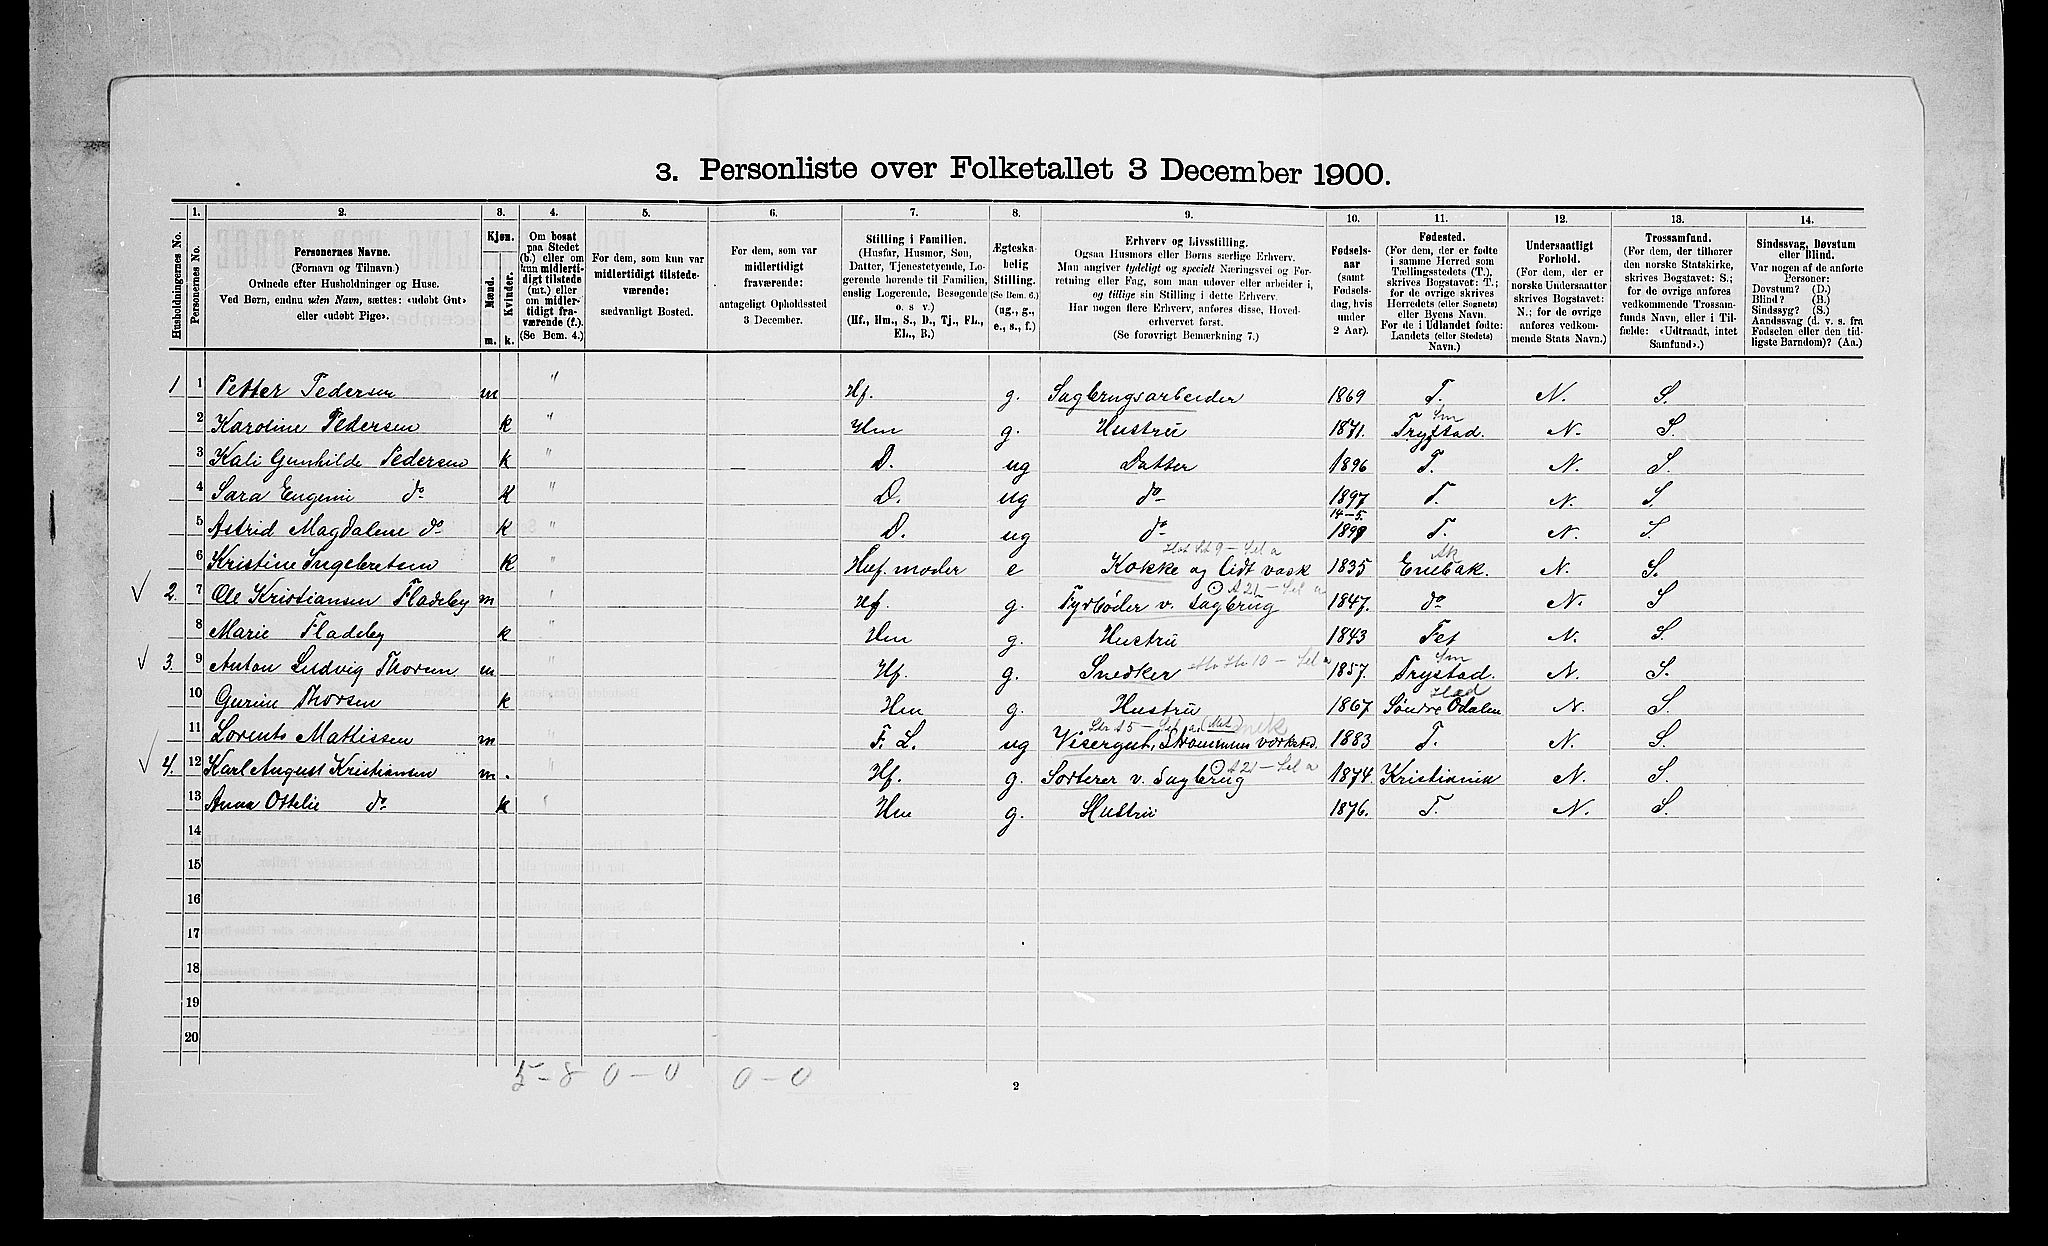 3. Personliste over Folketallet 3 December 1900.
Husholdningernes No.
1. Personernes No.
2. Personernes Navne.
(Fornavn og Tilnavn.)
Ordnede efter Husholdninger og Huse.
Ved Børn, endnu uden Navn, sættes: «udøbt Gut»
eller «udøbt Pige».
3. Kjøn.
Mænd. m.
Kvinder. k.
4. Om bosat
paa Stedet
(b.) eller om
kun midlerti-
digt tilstede
(mt.) eller
om midler-
tidigt fra-
værende (f.).
(Se Bem. 4.)
5. For dem, som kun var
midlertidigt tilstede-
værende:
sædvanligt Bosted.
6. For dem, som var
midlertidigt
fraværende:
antageligt Opholdssted
3 December.
7. Stilling i Familien.
(Husfar, Husmor, Søn,
Datter, Tjenestetyende, Lo-
gerende hørende til Familien,
enslig Logerende, Besøgende
o. s. v.)
(Hf., Hm., S., D., Tj., FL.,
EL., B.)
8. Ægteska-
belig
Stilling.
(Se Bem. 6.)
(ug., g.,
e., s., f.)
9. Erhverv og Livsstilling.
Ogsaa Husmors eller Børns særlige Erhverv.
Man angiver tydeligt og specielt Næringsvei og For-
retning eller Fag, som man udøver eller arbeider i,
og tillige sin Stilling i dette Erhverv.
Har nogen flere Erhverv, anføres disse, Hoved-
erhvervet først.
(Se forøvrigt Bemærkning 7.)
10. Fødsels-
aar
(samt
Fødsels-
dag, hvis
under
2 Aar).
11. Fødested.
(For dem, der er fødte
i samme Herred som
Tællingsstedets (T.),
skrives Bogstavet: T.;
for de øvrige skrives
Herredets (eller Sognets)
eller Byens Navn.
For de i Udlandet fødte:
Landets (eller Stedets)
Navn.)
12. Undersaatligt
Forhold.
(For dem, der er
norske Undersaatter
skrives Bogstavet:
N.; for de øvrige
anføres vedkom-
mende Stats Navn.)
13. Trossamfund.
(For dem, der tilhører
den norske Statskirke,
skrives Bogstavet: S.;
for de øvrige anføres
vedkommende Trossam-
funds Navn, eller i Til-
fælde: «Udtraadt, intet
Samfund».)
14. Sindssvag, Døvstum
eller Blind.
Var nogen af de anførte
Personer:
Døvstum? (D.)
Blind? (B.)
Sindssyg? (S.)
Aandssvag (d. v. s. fra
Fødselen eller den tid-
ligste Barndom)? (Aa.)
1 1 Petter Pedersen m " Hf. g. Sagbrugsarbeider 1869 T. N. S.
2 Karoline Pedersen k " Hm g. Hustru 1871. Trygstad. Sm N. S.
3 Kali Gunhilde Pedersen k " D. ug Datter 1896 T. N. S.
4 Sara Eugenie do k " D. ug do 1897 T. N. S.
5 Astrid Magdalene do k " D. ug do 14-5. 1899 T. N. S.
6 Kristine Ingebretsen k " Huf. moder e Kokke og lidt vask 1835 Enebak. Ak N. S.
✓ 2. 7 Ole Kristiansen Fladeby m " Hf. g. Fyrbøder v. Sagbrug A 21 - Sel a 1847. do N. S
8 Marie Fladeby k " Hm g. Hustru 1843 Fet N. S.
✓ 3. 9 Anton Ludvig Thorsen m " Hf. g. Snedker 1857. Trystad. Sm N. S.
10 Gurine Thorsen k Hm g. Hustru 1867 Søndre Odalen Hed N. S.
11 Lorents Mattissen m " F. L. ug Visergut, Strømmen værksted. 1883 T. N. S.
✓ 4. 12 Karl August Kristiansen m. " Hf. g. Sorterer v. Sagbrug A 21 - Sel a 1874. Kristiania N. S.
13 Anna Ottilie do k " Hm g. Hustru 1876. T. N. S.
14
15
16
17
18
19
20
5-8 0-0 0-0
2